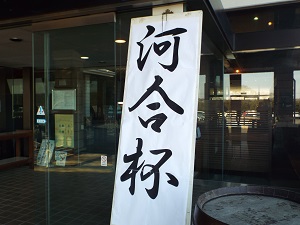 河合杯